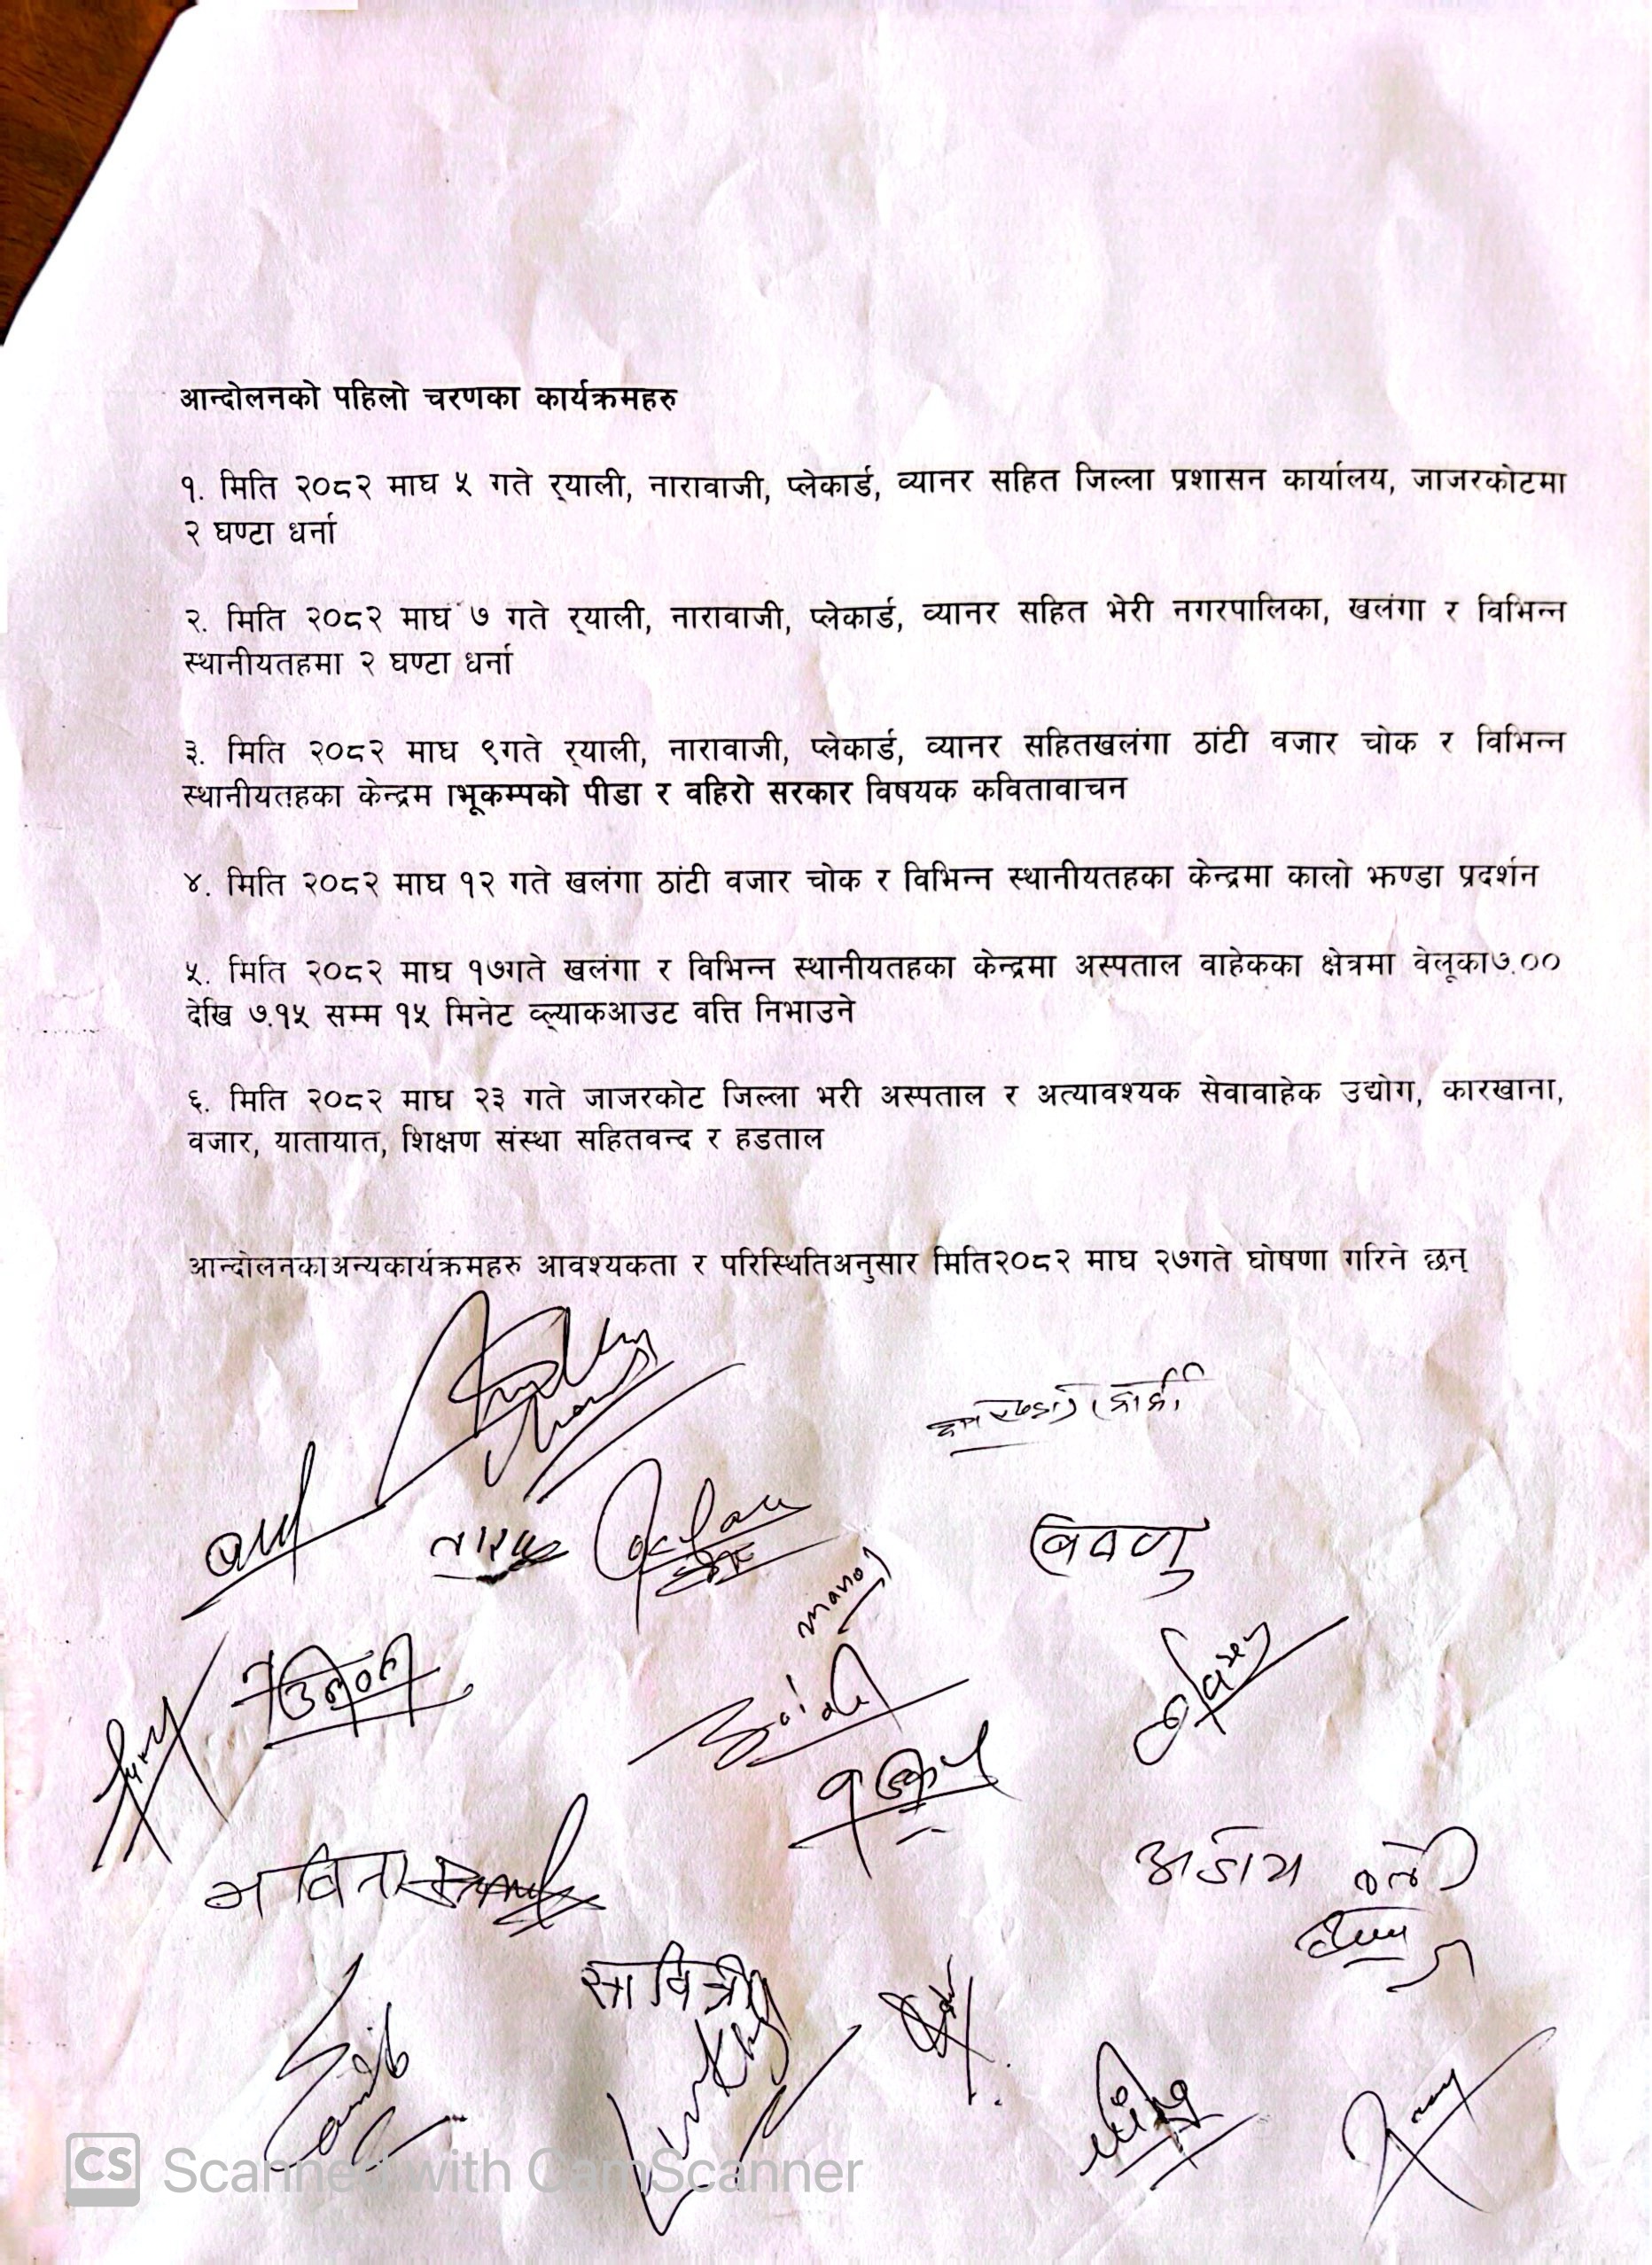 आन्दोलनको पहिलो चरणका कार्यक्रमहरु
१. मिति २०८२ माघ ५ गते र्‍याली, नारावाजी, प्लेकार्ड, व्यानर सहित जिल्ला प्रशासन कार्यालय, जाजरकोटमा
२ घण्टा धर्ना
२. मिति २०८२ माघ ७ गते र्‍याली, नारावाजी, प्लेकार्ड, व्यानर सहित भेरी नगरपालिका, खलंगा र विभिन्न
स्थानीयतहमा २ घण्टा धर्ना
३. मिति २०८२ माघ ९गते र्‍याली, नारावाजी, प्लेकार्ड, व्यानर सहितखलंगा ठांटी वजार चोक र विभिन्न
स्थानीयतहका केन्द्रम ाभूकम्पको पीडा र वहिरो सरकार विषयक कवितावाचन
४. मिति २०८२ माघ १२ गते खलंगा ठांटी वजार चोक र विभिन्न स्थानीयतहका केन्द्रमा कालो झण्डा प्रदर्शन
५. मिति २०८२ माघ १७गते खलंगा र विभिन्न स्थानीयतहका केन्द्रमा अस्पताल वाहेकका क्षेत्रमा वेलूका७.००
देखि ७.१५ सम्म १५ मिनेट व्ल्याकआउट वत्ति निभाउने
६. मिति २०८२ माघ २३ गते जाजरकोट जिल्ला भरी अस्पताल र अत्यावश्यक सेवावाहेक उद्योग, कारखाना,
वजार, यातायात, शिक्षण संस्था सहितवन्द र हडताल
आन्दोलनकाअन्यकार्यक्रमहरु आवश्यकता र परिस्थितिअनुसार मिति२०८२ माघ २७गते घोषणा गरिने छन्
manoj
सावित्री
CS Scanned with CamScanner